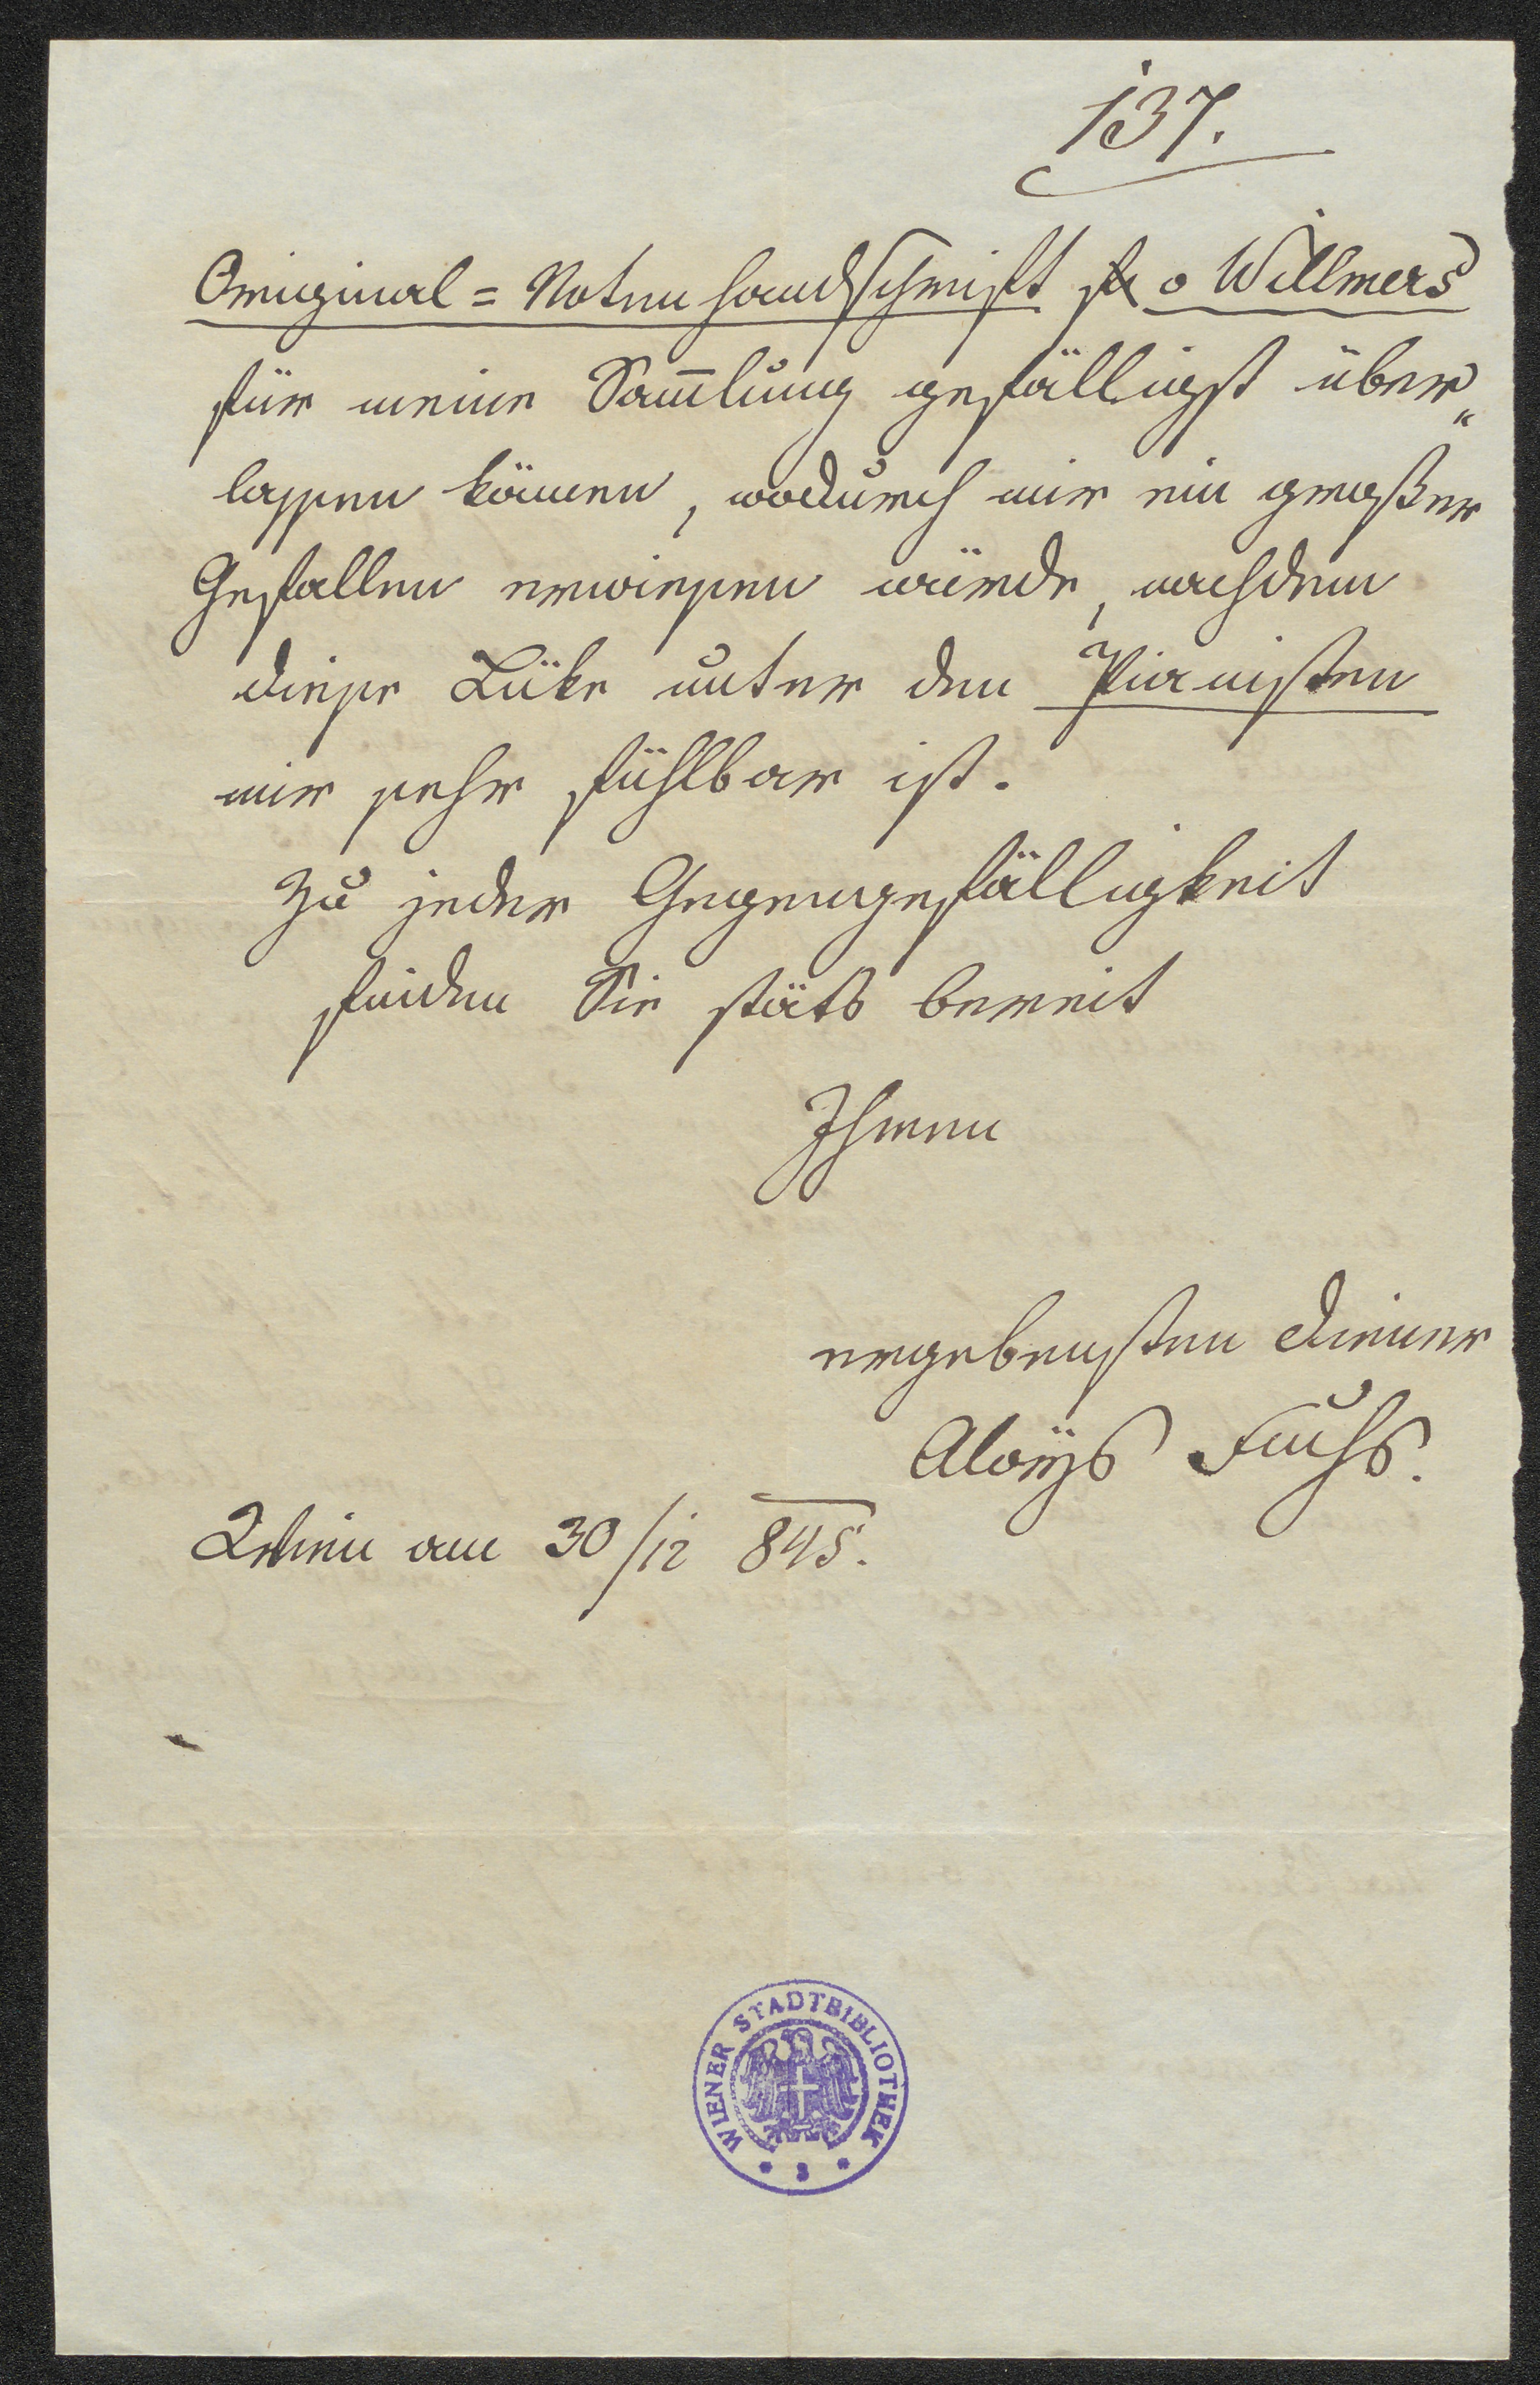 137.
Original=Notenhandschrift v Willmers
für meine Sam̅lung gefälligst über„
lassen kön̅en, wodurch mir ein großer
Gefallen erwiesen würde, nachdem
diese Lüke unter den Pianisten
mir sehr fühlbar ist.
Zu jeder Gegengefälligkeit
finden Sie stäts bereit
Ihren
ergebensten Diener
Aloÿs Fuchs.
Wien am 30/12 845.
WIENER STADTBIBLIOTHEK
* 3 *